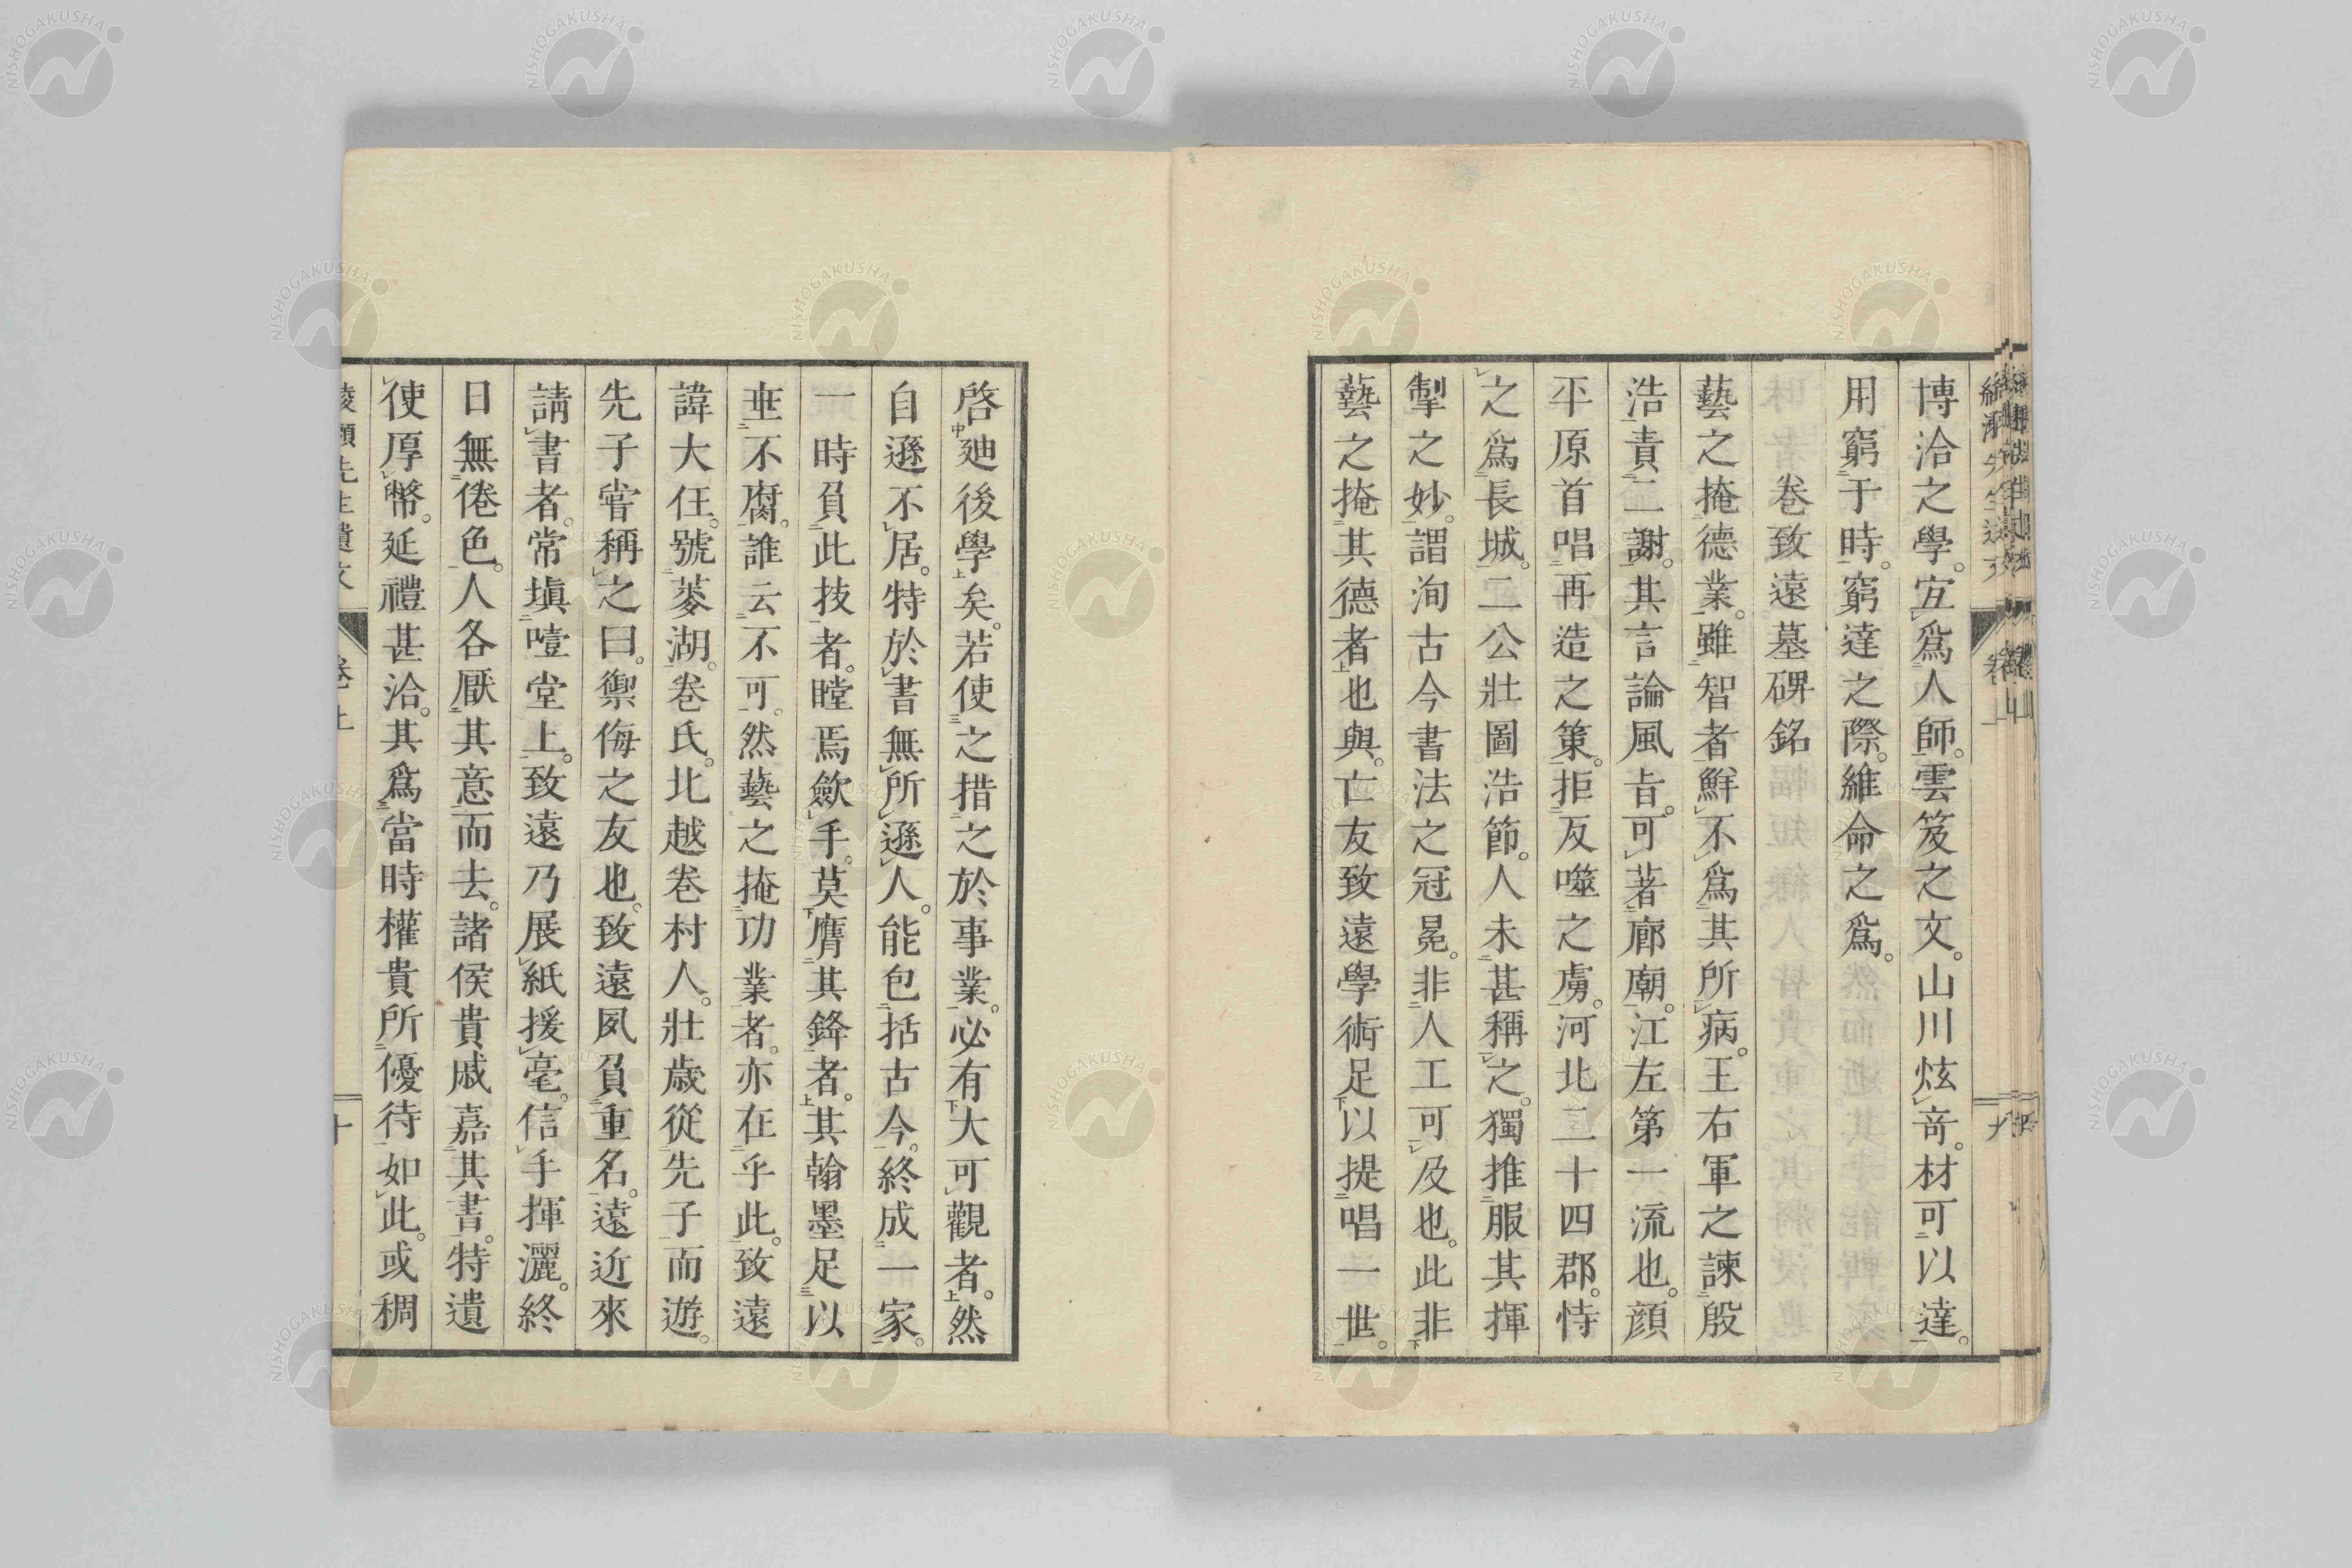 博洽之學。宜爲人師。雲笈之文。山川炫奇。材可以達。
用窮于時。窮達之際。維命之爲。
卷致遠墓碑銘
藝之掩德業。雖智者鮮不爲其所病。王右軍之諫殷
浩責二謝。其言論風旨。可著廊廟。江左第一流也。顏
平原首唱再造之策。拒反噬之虜。河北二十四郡。恃
之爲長城。二公壯圖浩節。人未甚稱之。獨推服其揮
掣之妙。謂洵古今書法之冠冕。非人工可及也。此非
藝之掩其德者也與。亡友致遠學術足以提唱一世。
啓廸後學矣。若使之措之於事業。必有大可觀者。然
自遜不居。特於書無所遜人。能包括古今。終成一家。
一時負此技者。瞠焉歛手。莫膺其鋒者。其翰墨足以
垂不腐。誰云不可。然藝之掩功業者。亦在乎此。致遠
諱大任。號菱湖。卷氏。北越卷村人。壯歲從先子而遊。
先子甞稱之曰。禦侮之友也。致遠夙負重名。遠近來
請書者。常塡噎堂上。致遠乃展紙援毫。信手揮灑。終
日無倦色。人各厭其意而去。諸侯貴戚嘉其書。特遺
使厚幣。延禮甚洽。其爲當時權貴所優待如此。或稠
先生遺文 卷上 十
NISHOGAKUSHA